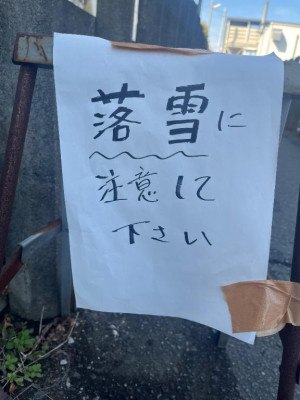 落雪に
注意して
下さい